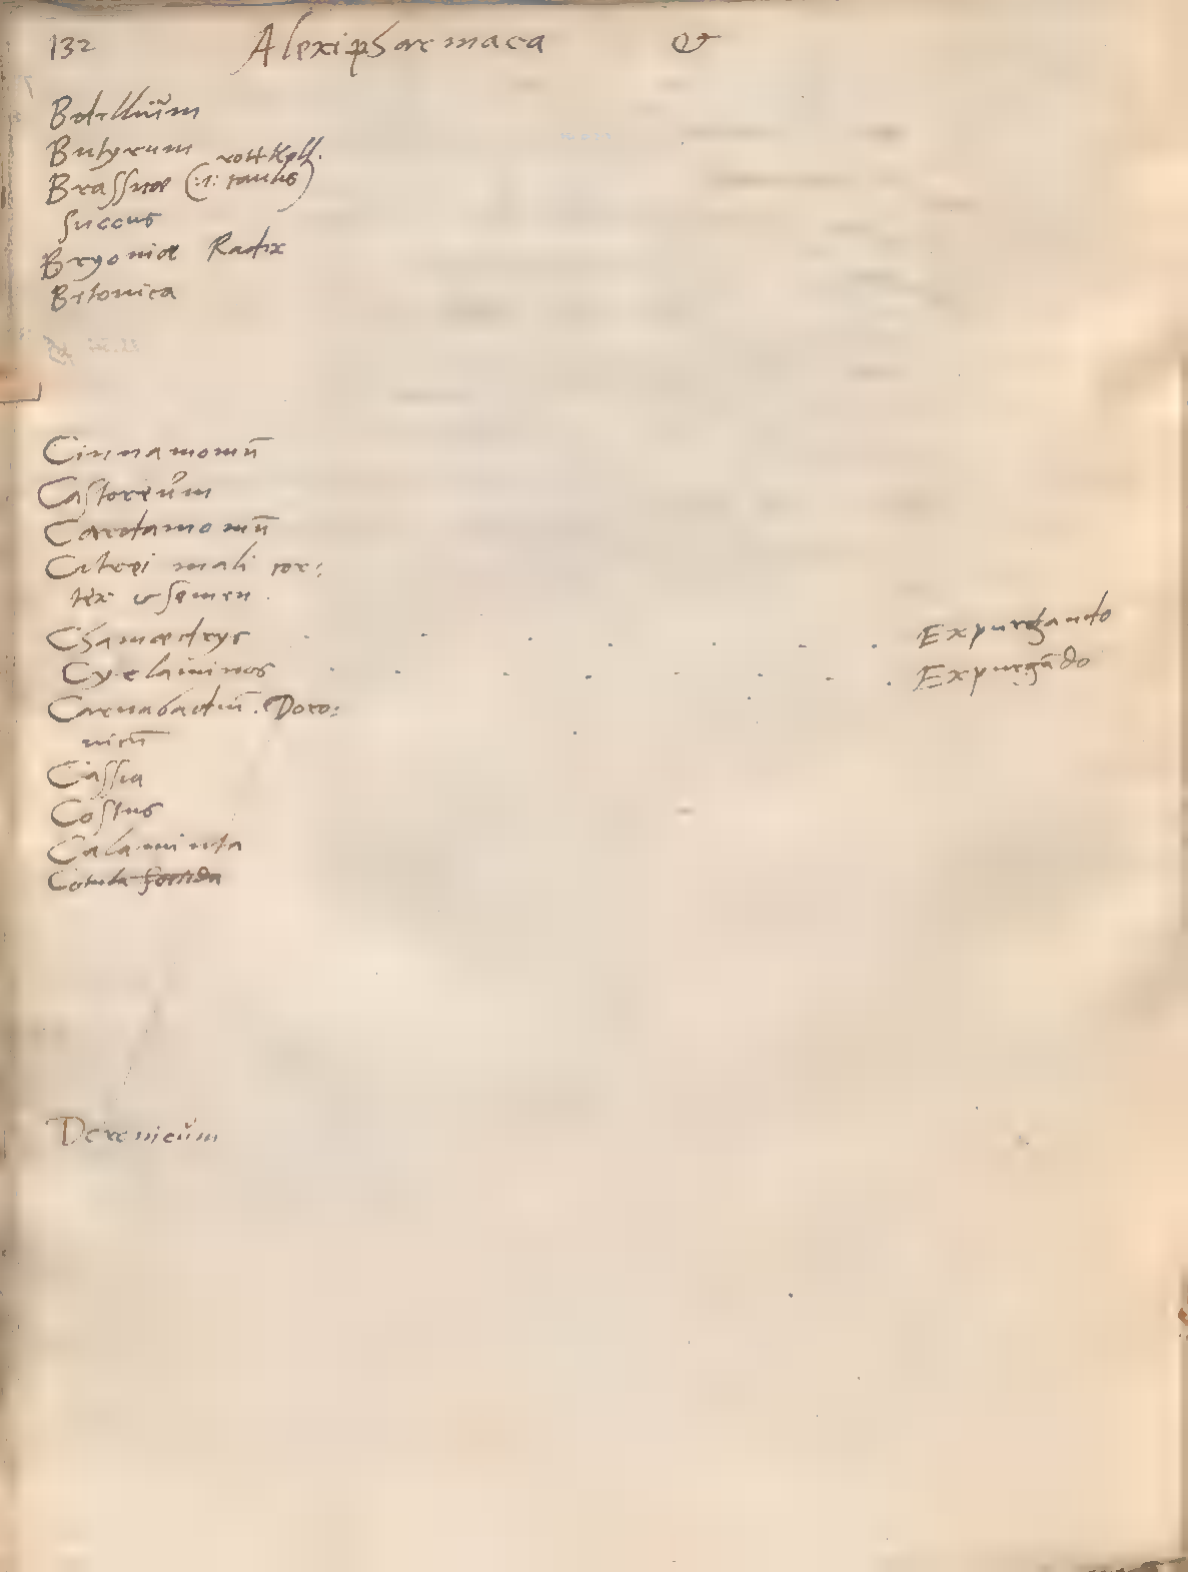 132 Alexipharmaca &
Bdellium
Butyrum
rott Kohl.
Brassicæ (:i: caulis)
succus
Bryoniæ Radix
Betonica
Cinnamomū
Castoreum
Cardamomū
Citrei mali cor:
tex & semen.
Chamædrys . . . . . . . . Expurgando
Cyclaminos . . . . . . . . Expurgādo
Carnabadiū. Doro:
nicū
Cassia
Costus
Calaminta
Cotula foetida
Doronicum